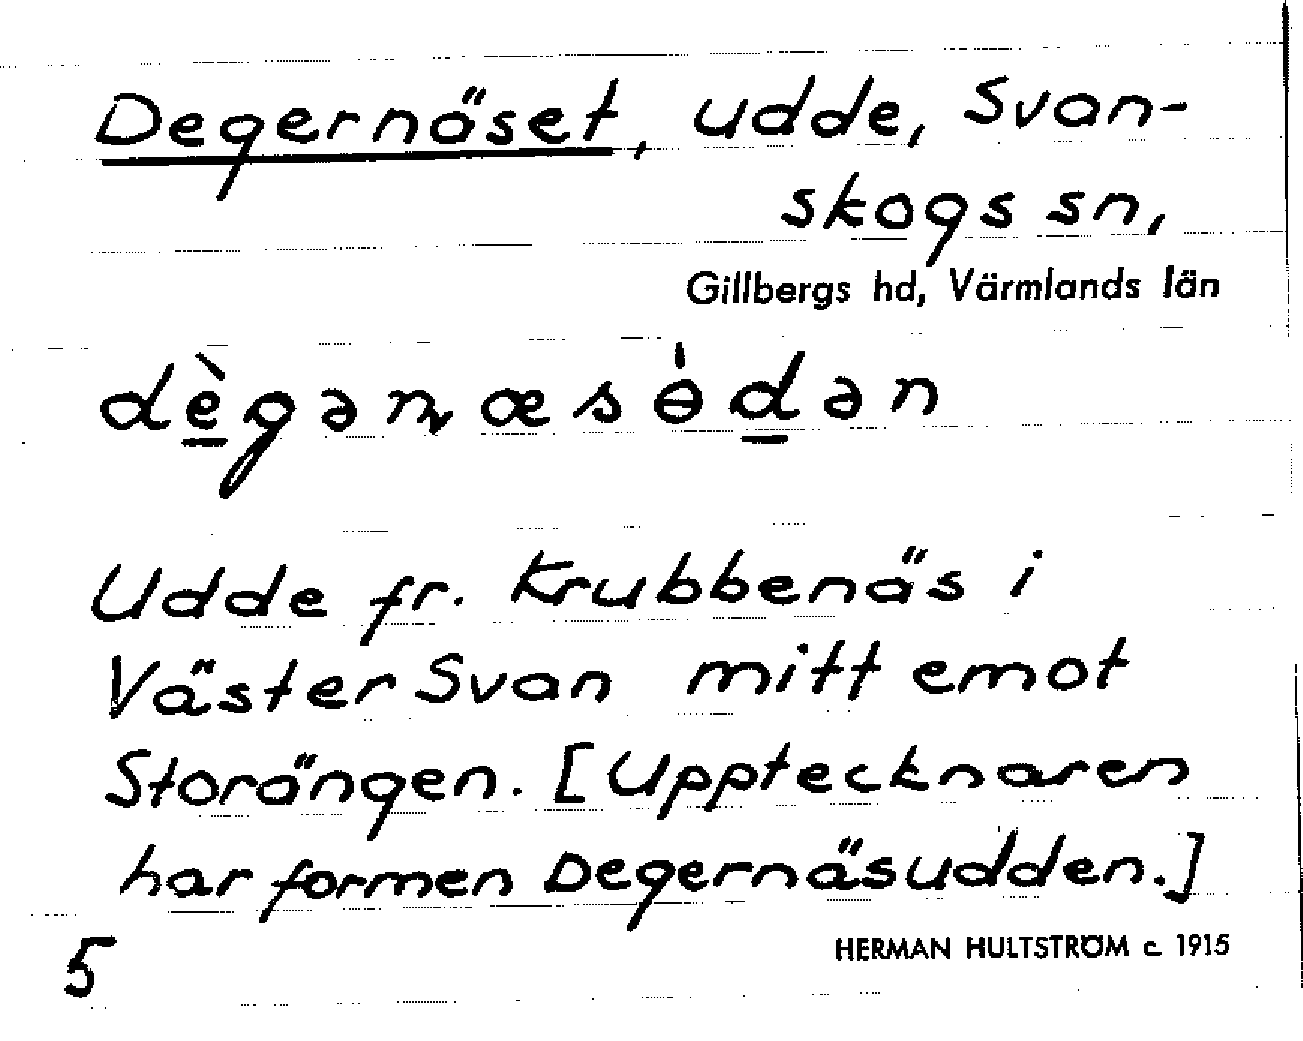 Degernäset, udde, Svan-
skogs sn,
Gillbergs hd, Värmlands län
dè̲gəɳæsɵ̍d̲ən
Udde fr. Krubbenäs i
Väster Svan mitt emot
Storängen. [Upptecknaren
har formen Degernäsudden.]
5
HERMAN HULTSTRÖM c. 1915